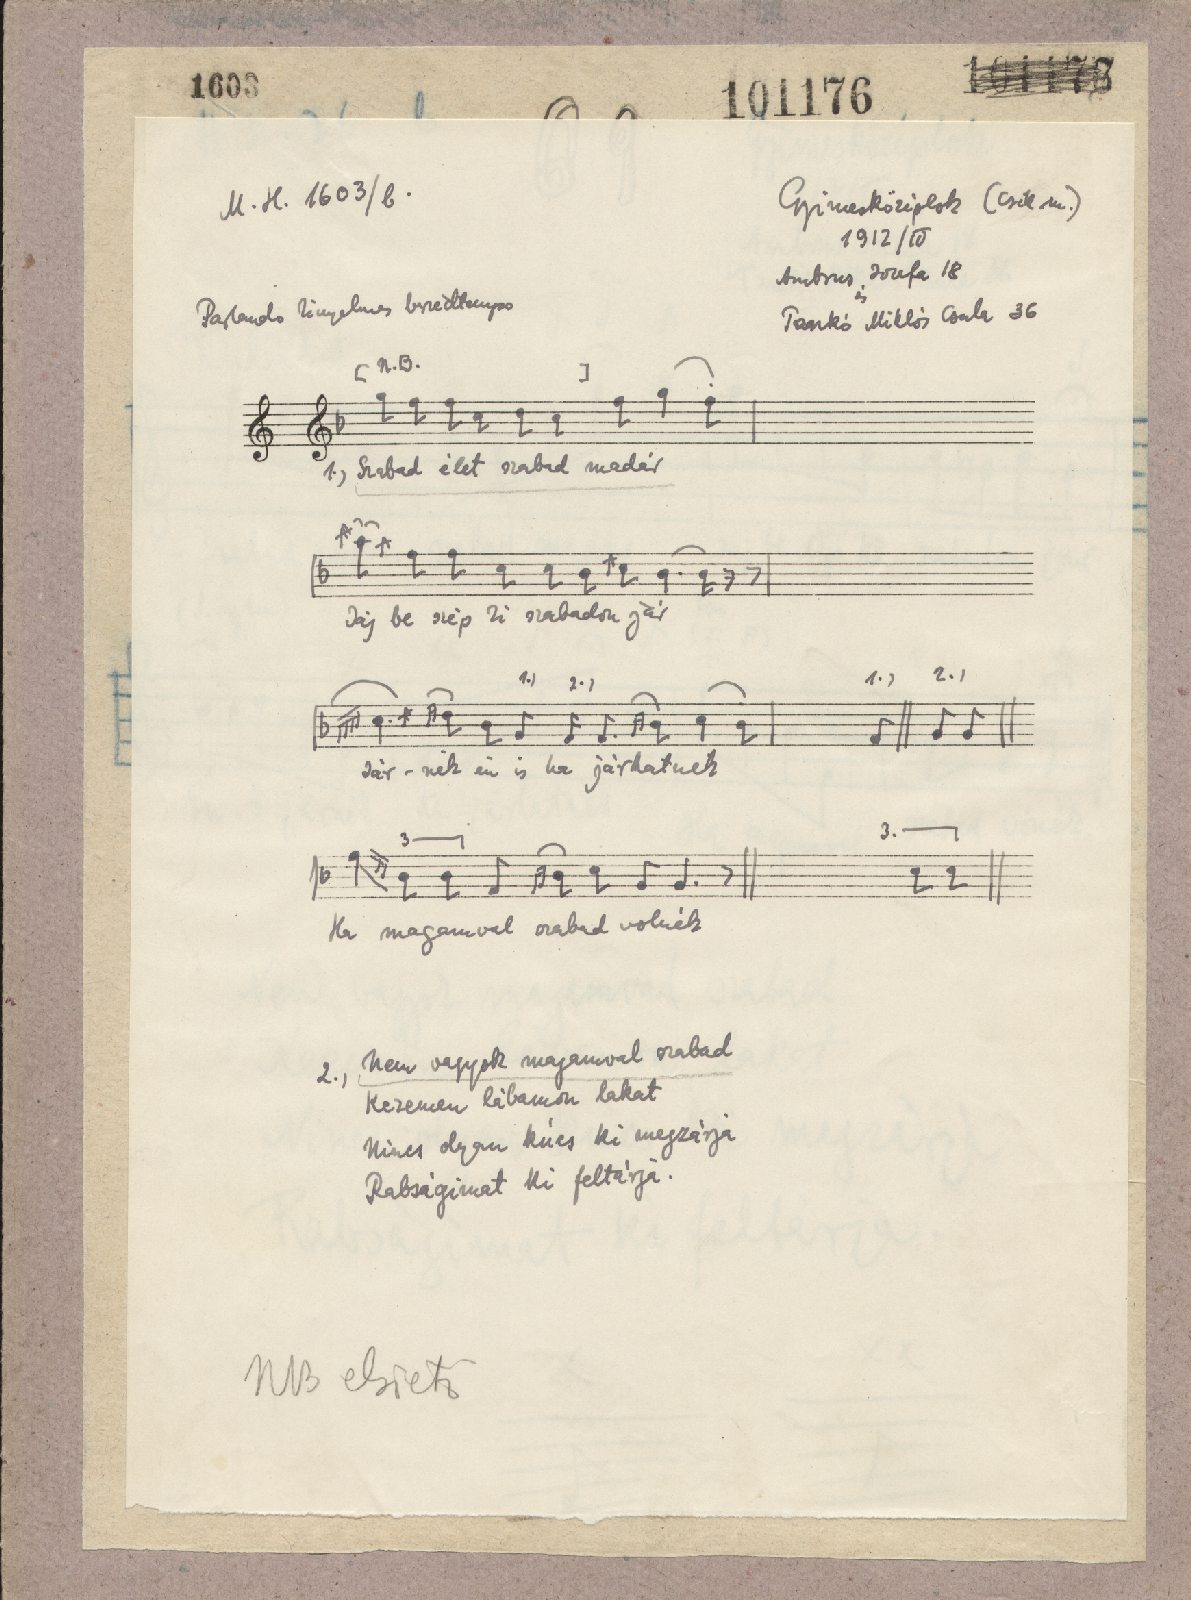 1603
101176
101178
69
M.H. 1603/b.
Gyimesközéplok (Csík m.)
1912/IV
Ambrus Jozefa 18
és
Tankó Miklós Csula 36
Parlando kényelmes beszédtempo
[ N.B. ]
1., Szabad élet szabad madár
Jáj be szép ki szabadon jár
1., 2., 1., 2.,
Jár-nék én is ha járhatnék
3 3.
Ha magamval szabad volnék
2., Nem vagyok magamval szabad
Kezemen lábamon lakat
Nincs olyan kúcs ki megzárja
Rabságimat ki feltárja.
NB